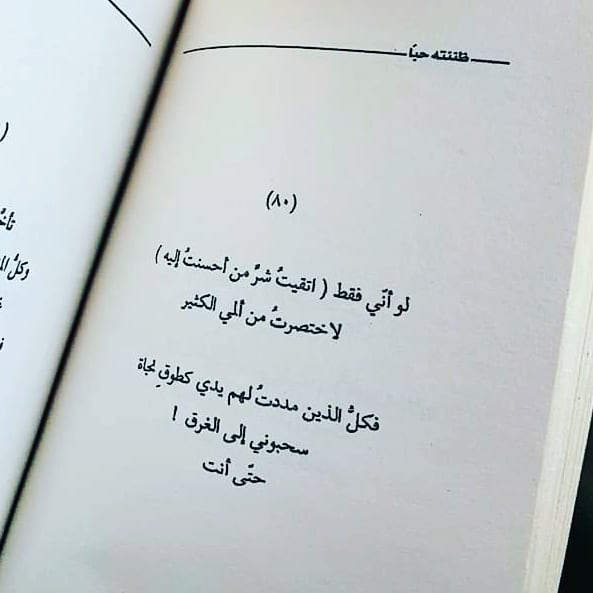 ظننته حبًا
(٨٠)
لو أنّي فقط ( اتقيتُ شرَّ من أحسنتُ إليه )
لاختصرتُ من ألمي الكثير
فكلُّ الذين مددتُ لهم يدي كطوقِ نجاة
سحبوني إلى الغرق !
حتّى أنت